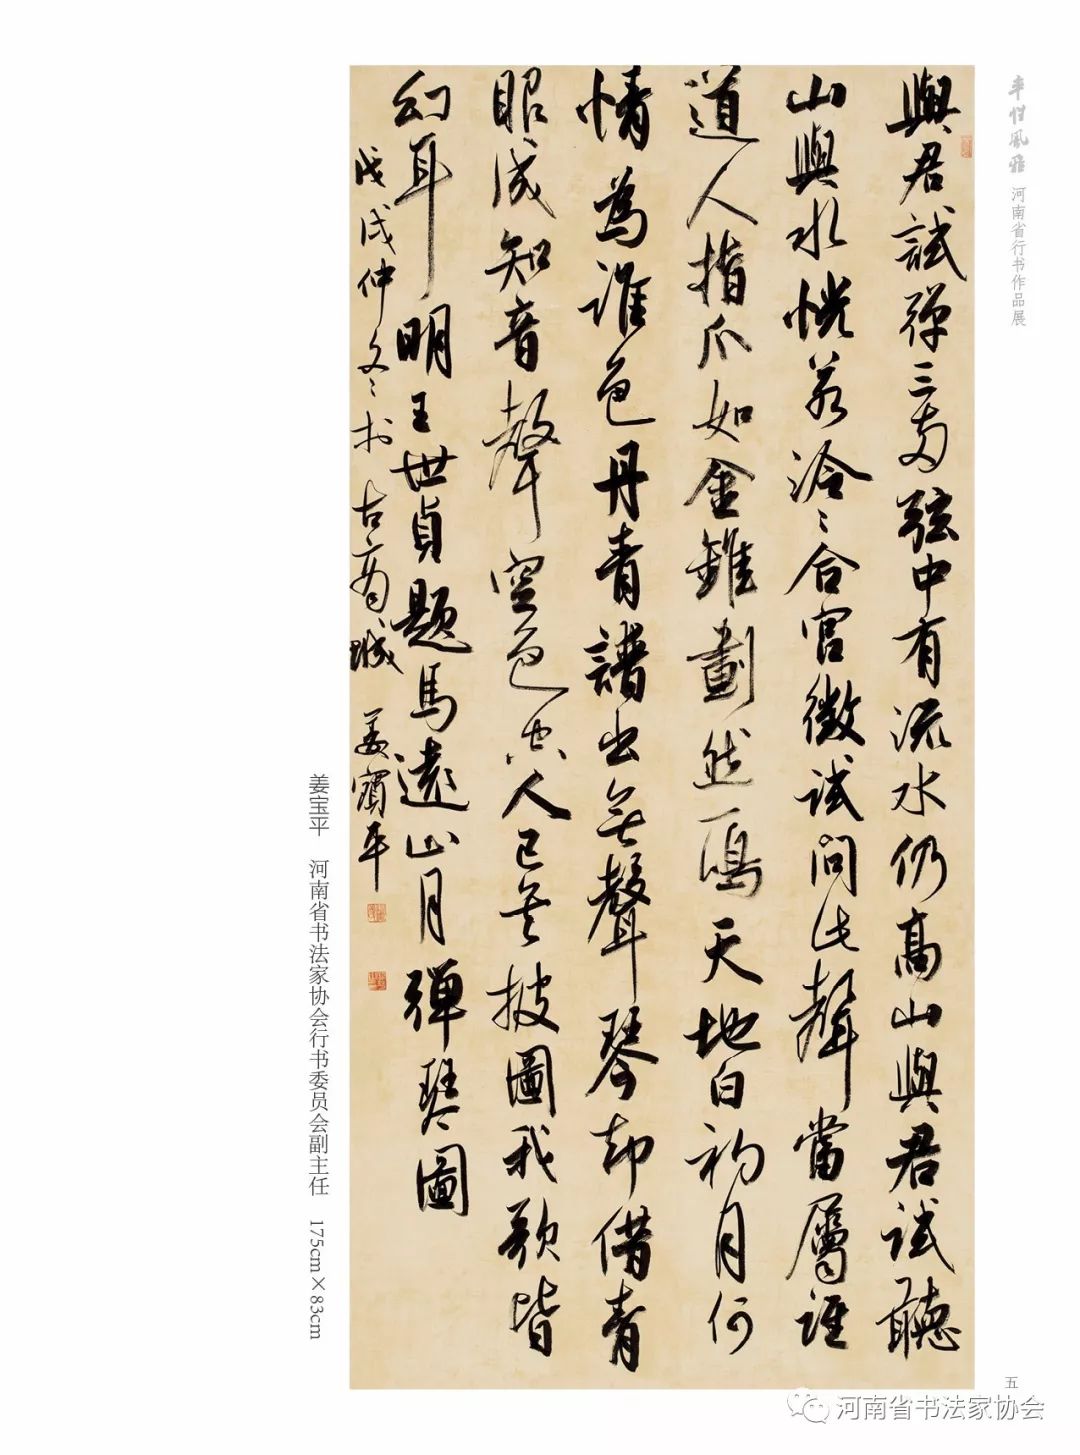 與君試彈三兩弦中有流水仍高山與君試聽
山與水恍若泠泠合宫徵試問此聲當屬誰
道人指爪如金錐劃然一鳴天地白初月何
情為誰色丹青譜出無聲琴却借青
眼成知音聲空色空人已無披圖我歌皆
幻耳明王世貞題馬遠山月彈琴圖
戊戌仲冬於古商城姜寶平
河南省行书作品展
姜宝平 河南省书法家协会行书委员会副主任 175cm×83cm
五
河南省书法家协会